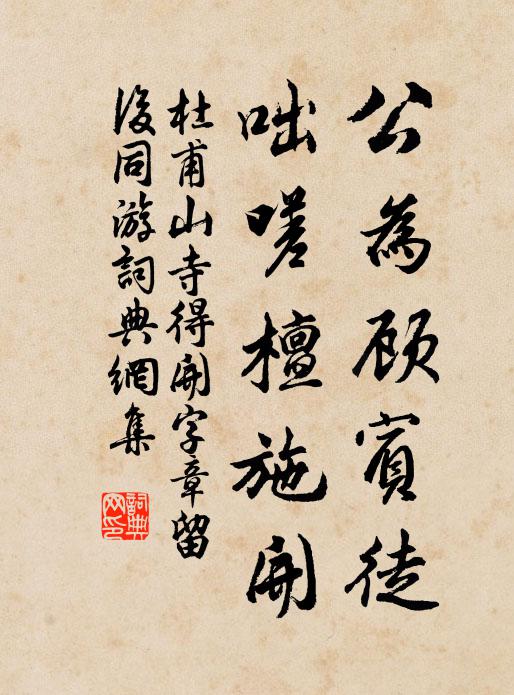 公為顧賓徒
咄嗟檀施開
杜甫山寺得開字章留
後同游詞典網集
詞典網印